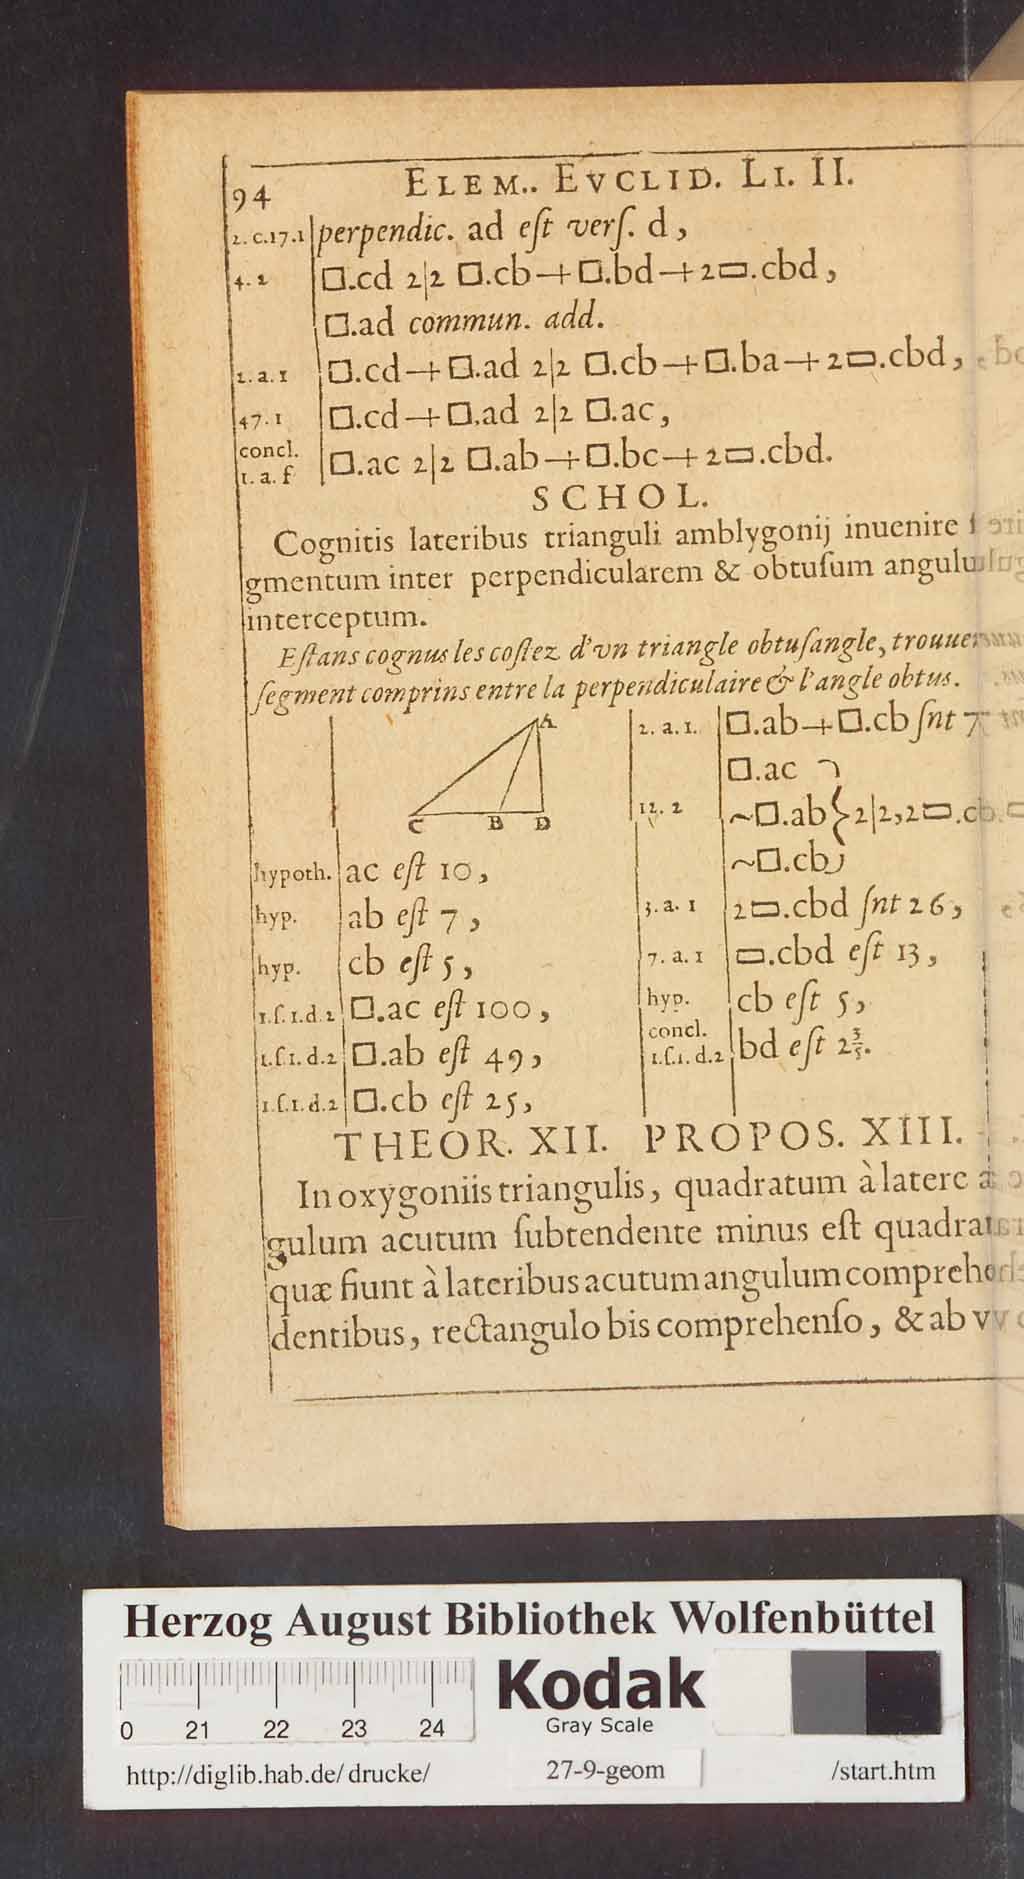 94 ELEM.. EVCLID. LI. II.
2. c.17.1 perpendic. ad eſt verſ. d,
4. 2 □.cd 2|2 □.cb+□.bd+2▭.cbd,
□.ad commun. add.
2. a. 1 □.cd+□.ad 2|2 □.cb+□.ba+2▭.cbd,
47. 1 □.cd+□.ad 2|2 □.ac,
concl.
1. a. f □.ac 2|2 □.ab+□.bc+2▭.cbd.
SCHOL.
Cognitis lateribus trianguli amblygonij inuenire
gmentum inter perpendicularem & obtuſum angulu
interceptum.
Eſtans cognus les coſtez d'vn triangle obtuſangle, trouuer
ſegment comprins entre la perpendiculaire & l'angle obtus.
A
C B D
hypoth. ac eſt 10,
hyp. ab eſt 7,
hyp. cb eſt 5,
1.ſ.1.d.2 □.ac eſt 100,
1.ſ.1.d.2 □.ab eſt 49,
1.ſ.1.d.2 □.cb eſt 25,
2. a. 1. □.ab+□.cb ſnt 7
□.ac
12. 2 ~□.ab} 2|2,2▭.cb
~□.cb
3. a. 1 2▭.cbd ſnt 26,
7. a. 1 ▭.cbd eſt 13,
hyp. cb eſt 5,
concl.
1.ſ.1.d.2 bd eſt 2 3/5.
THEOR. XII. PROPOS. XIII.
In oxygoniis triangulis, quadratum à latere
gulum acutum ſubtendente minus eſt quadrat
quæ fiunt à lateribus acutum angulum comprehe
dentibus, rectangulo bis comprehenſo, & ab v
Herzog August Bibliothek Wolfenbüttel
0 21 22 23 24
Kodak
Gray Scale
http://diglib.hab.de/drucke/ 27-9-geom /start.htm